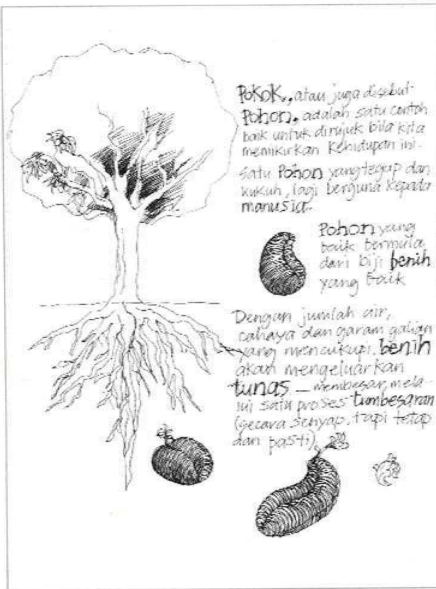 Pokok, atau juga disebut
Pohon, adalah satu contoh
baik untuk dirujuk bila kita
memikirkan kehidupan ini.
satu Pohon yang tegap dan
kukuh, lagi berguna kepada
manusia.
Pohon yang
baik bermula
dari biji benih
yang baik
Dengan jumlah air,
cahaya dan garam galian
yang mencukupi, benih
akan mengeluarkan
tunas — membesar mela-
lui satu proses tumbesaran
(secara senyap, tapi tetap
dan pasti).